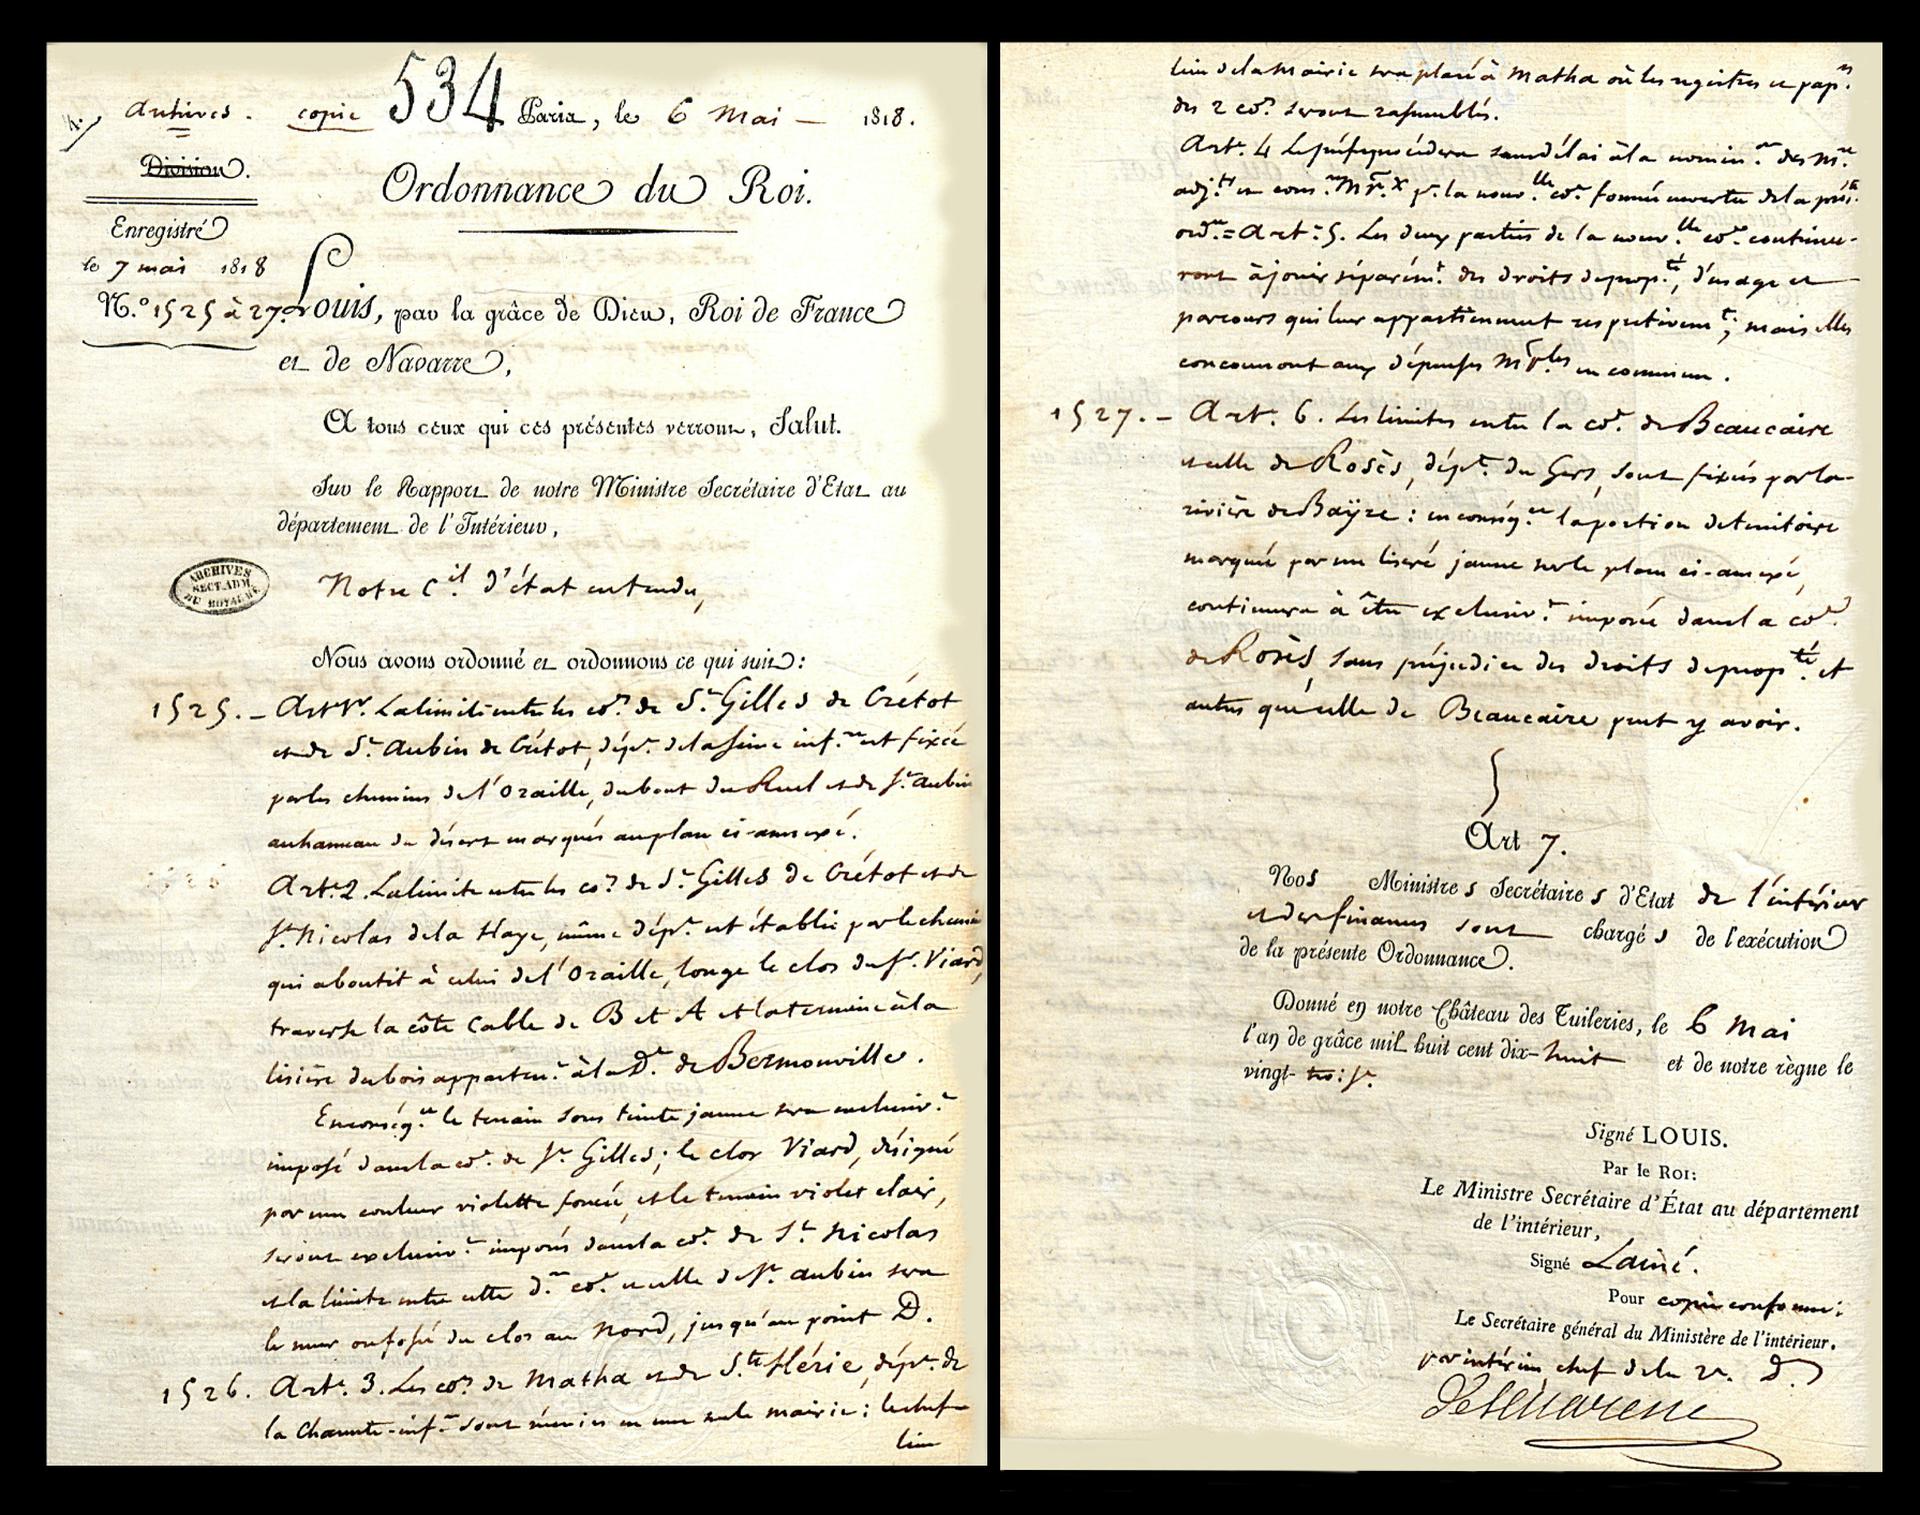 534
Archives. copie Paris, le 6 Mai — 1818.
Division.
Ordonnance du Roi.
Enregistré
le 7 mai 1818
N.° 1525 à 27.
Louis, par la grâce de Dieu, Roi de France
et de Navarre,
A tous ceux qui ces présentes verront, Salut.
Sur le Rapport de notre Ministre Secrétaire d'Etat au
département de l'Intérieur,
ARCHIVES
SECT. ADM.
DU ROYAUME
Notre C.il d'état entendu,
Nous avons ordonné et ordonnons ce qui suit:
1525. – Art. 1r. La limite entre les co.es de St. Gilles de Crétot
et de St. Aubin de Crétot, dépt. de la Seine inf.re est fixée
par les chemins de l'Oraille, du bout du Ruel et de St. Aubin
au hameau du désert marqués au plan ci-annexé.
Art. 2. La limite entre les co.es de St. Gilles de Crétot et de
St. Nicolas de la Haye, même dépt. est établie par le chemin
qui aboutit à celui de l'Oraille, longe le clos du Sr. Viard,
traverse la côte Cable de B et A et la termine à la
lisière du bois apparten.t à la De. de Bermonville.
En conséq.ce le terrain sous teinte jaune sera exclusiv.t
imposé dans la co.e de St. Gilles; le clos Viard, désigné
par une couleur violette foncée, et le terrain violet clair,
seront exclusiv.t imposés dans la co.e de St. Nicolas
et la limite entre cette d.re co.e et celle de St. Aubin sera
le mur ou fossé du clos au Nord, jusqu'au point D.
1526. Art. 3. Les co.es de Matha et de Ste. Hérie, dépt. de
la Charente-inf.re sont réunies en une seule mairie: le chef-
lieu
lieu de la Mairie sera placé à Matha où les registres et pap.rs
des 2 co.es seront rassemblés.
Art. 4 Le préfet procédera sans délai à la nomin.on des M.re
adj.ts et cons.rs M.px pr. la nouv.lle co.e formée en vertu de la prés.te
ord.ce = Art. 5. Les deux parties de la nouv.lle co.e continue-
ront à jouir séparém.t des droits de prop.té, d'usage et
parcours qui leur appartiennent respectivem.t; mais elles
concourront aux dépenses M.ples en commun.
1527. – Art. 6. Les limites entre la co.e de Beaucaire
et celle de Rosès, dépt. du Gers, sont fixées par la
rivière de Baÿze: en conséq.ce la portion de territoire
marquée par un liseré jaune sur le plan ci-annexé,
continuera à être exclusiv.t imposée dans la co.e
de Rosès, sans préjudice des droits de prop.té et
autres que celle de Beaucaire peut y avoir.
Art 7.
Nos Ministres Secrétaires d'Etat de l'intérieur
et des finances sont chargés de l'exécution
de la présente Ordonnance.
Donné en notre Château des Tuileries, le 6 Mai
l'an de grâce mil huit cent dix-huit et de notre règne le
vingt-
Signé LOUIS.
Par le ROI:
Le Ministre Secrétaire d'État au département
de l'intérieur,
Signé Lainé.
Pour copie conforme:
Le Secrétaire général du Ministère de l'intérieur.
par intérim, chef de la 2e. D.